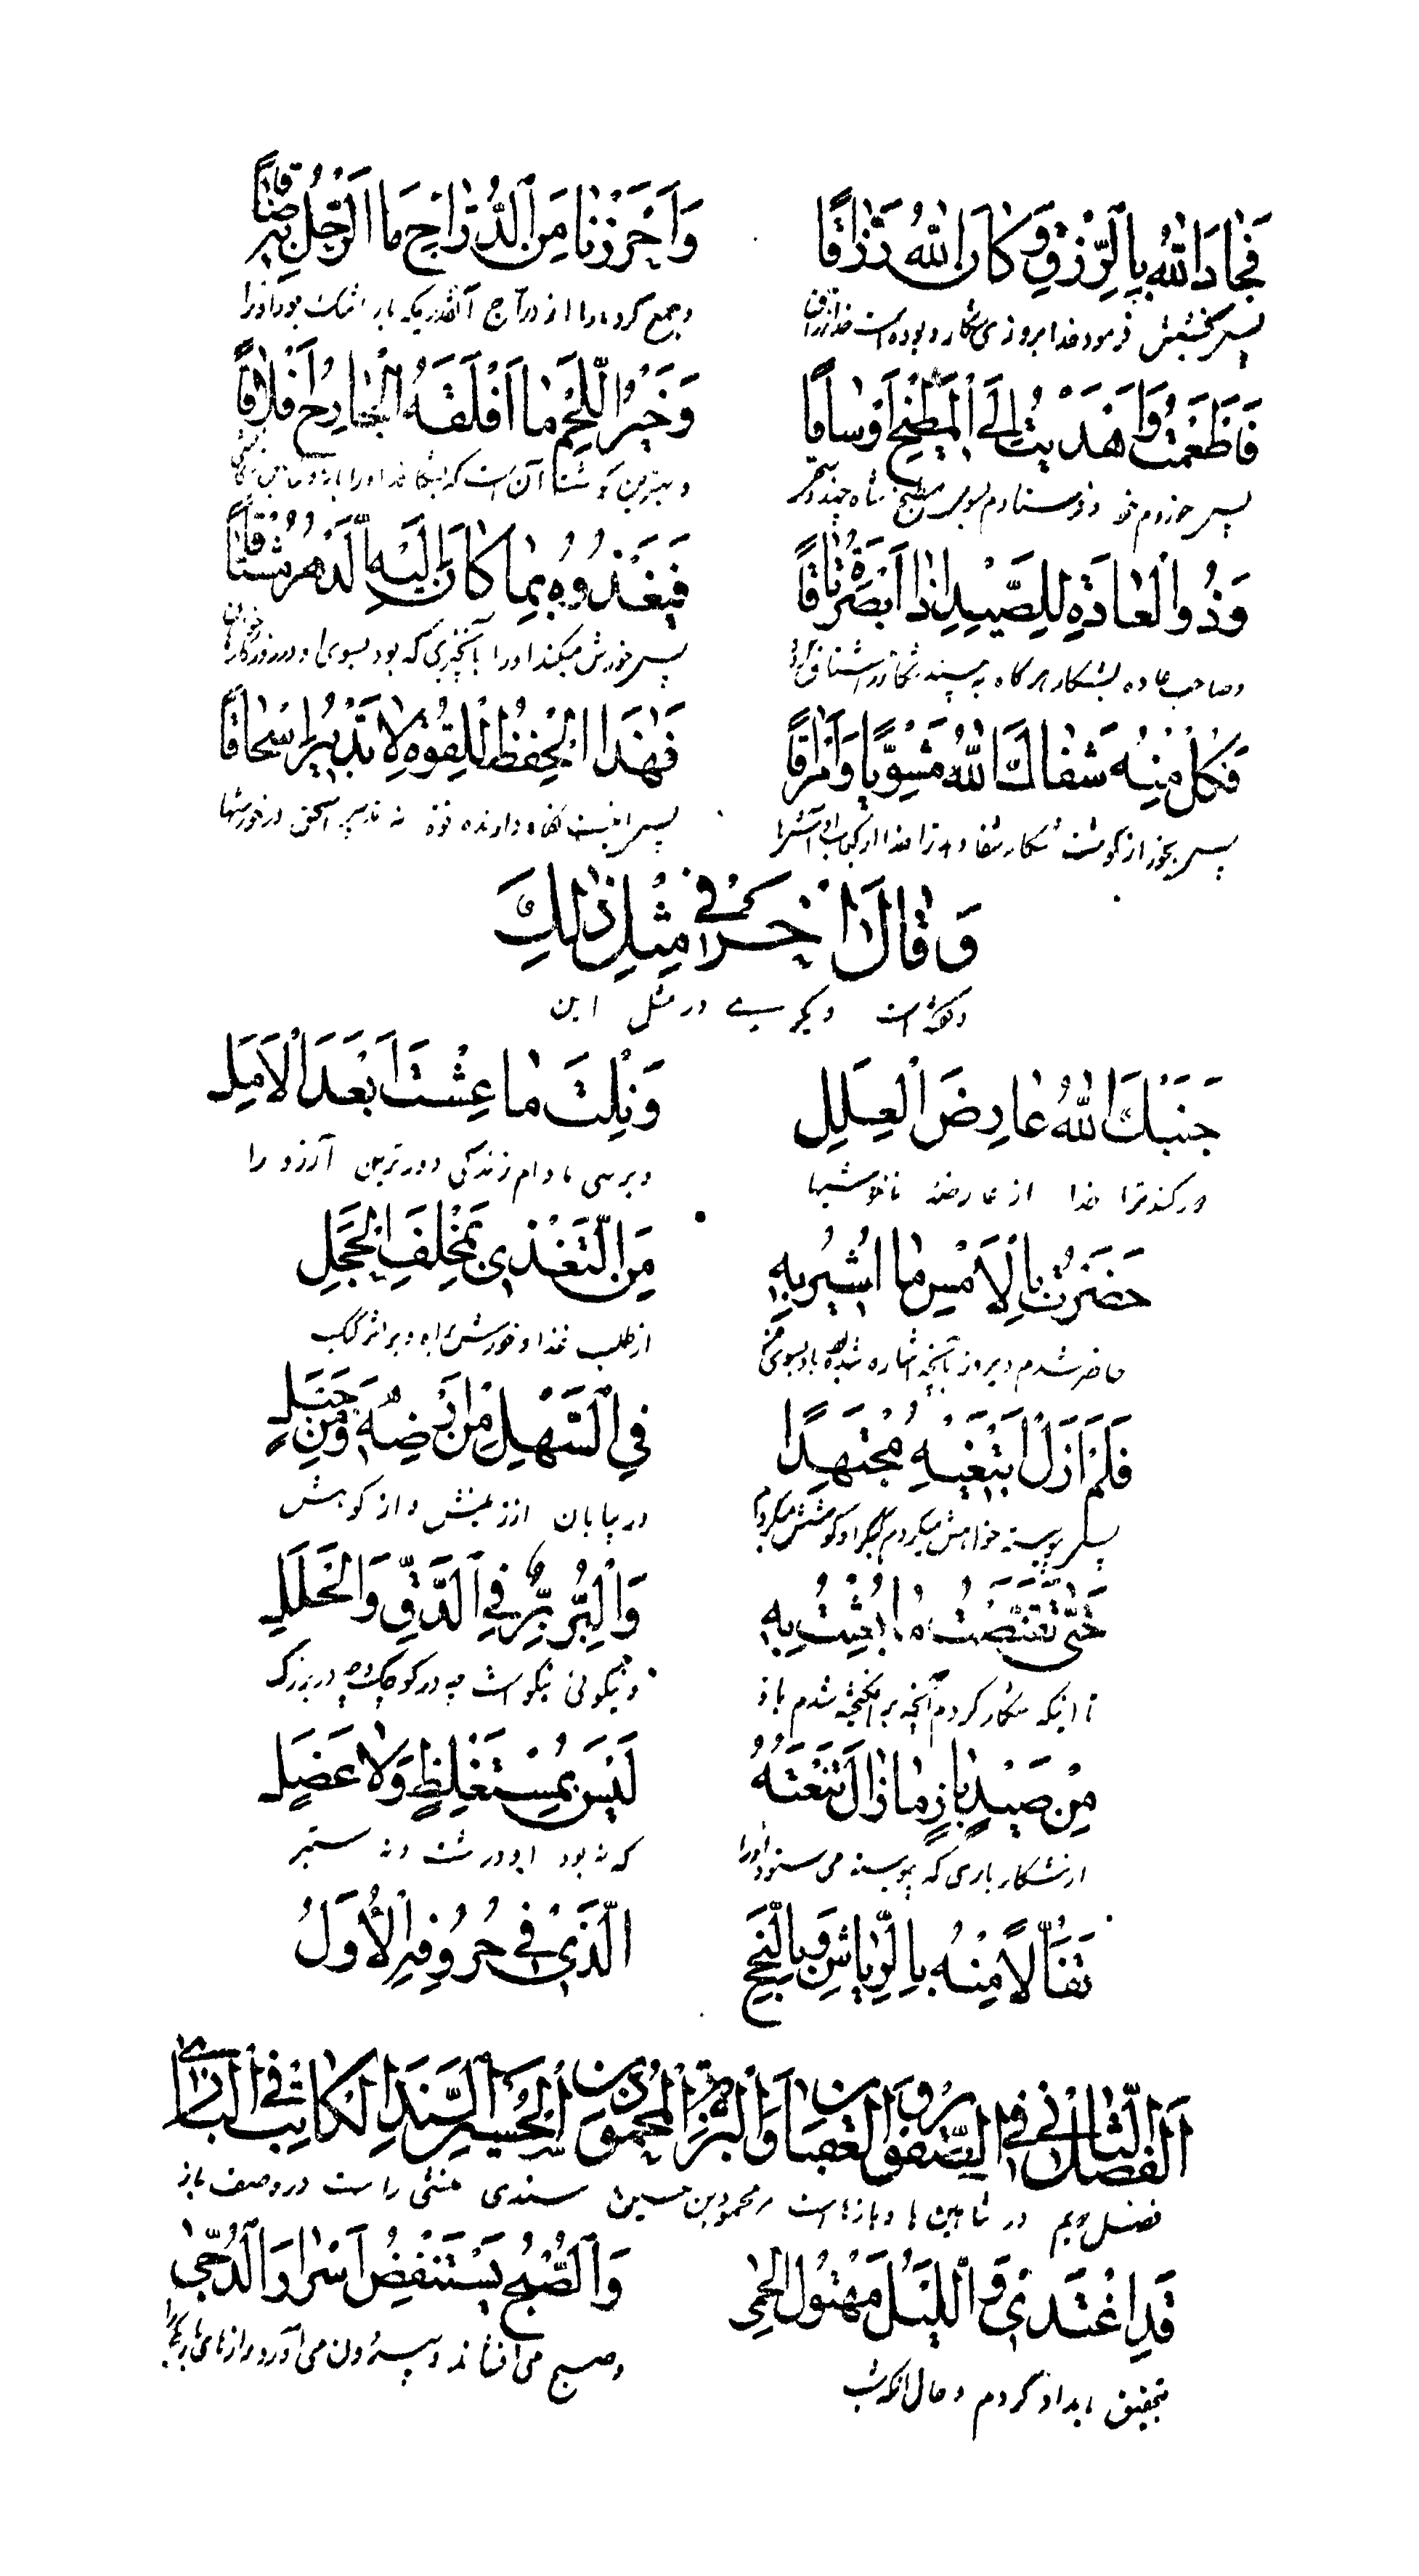 فَجَادَ اللّٰهُ بِالرِّزْقِ وَكَانَ اللّٰهُ رَزَّاقًا
وَاَحْرَزْنَا مِنَ الدُّرَّاجِ مَا الرَّجُلُ بِهِ ضَاقًا
پس بخشش فرمود خدا بروزی شکار و بوده است خدا رزاق
و جمع کردیم ما از دراج آنقدریکه بار
فَاَطْعَمْتُ وَاَهْدَيْتُ اِلَى الْمَطْبَخِ اَوْسَاقًا
وَخَيْرُ اللَّحْمِ مَا اَقْلَقَهُ الْجَارِحُ اِقْلَاقًا
پس خوردم خود و فرستادم بسوی مطبخ شاه چند
و بهترین گوشتها آن است که
وَذُو الْعَادَةِ لِلصَّيْدِ اِذَا اَبْصَرَهُ تَاقًا
فَيَغْذُوهُ بِمَا كَانَ اِلَيْهِ الدَّهْرَ مُشْتَاقًا
و صاحب عاده بشکار هرگاه به بیند شکار را مشتاق
پس خورش میکند او را بآنچیزی که بود بسوی او در روزگارها
فَكُلْ مِنْهُ شَفَاكَ اللّٰهُ مَشْوِيًّا وَاَمْرَاقًا
فَهٰذَا الْحِفْظُ لِلْقُوَّةِ لَا تَدْبِيرُ اِسْحَاقًا
پس بخور از گوشت شکار شفا دهد ترا خدا از کباب
پس اینست نگاه دارنده قوه نه تدبیر اسحق در خورشها
وَ قَالَ اٰخَرُ فِي مِثْلِ ذٰلِكَ
و گفته است دیگری در مثل این
جَنَّبَكَ اللّٰهُ عَارِضَ الْعِلَلِ
وَنِلْتَ مَا عِشْتَ اَبْعَدَ الْاَمَلِ
در کند ترا خدا از عارضه ناخوشیها
و برسی مادام زندگی دورترین آرزو را
حَضَرْتُ بِالْاَمْسِ مَا اُشِيرَ بِهِ
مِنَ التَّغَذِّي بِمُخْلِفِ الْحَجَلِ
حاضر شدم دیروز بآنچه اشاره شده
از طلب غذا و خورش
فَلَمْ اَزَلْ اَبْتَغِيهِ مُجْتَهِدًا
فِي السَّهْلِ مِنْ اَرْضِهِ وَمِنْ جَبَلِ
پس پیوسته خواهش میکردم
در بیابان از زمینش و از کوهش
حَتّٰى تَقَنَّصْتُ مَا بُعِثْتُ بِهِ
وَالْبِرُّ بِرٌّ فِي الدِّقِّ وَالْجَلَلِ
تا اینکه شکار کردم آنچه برانگیخته شدم باو
و نیکوئی نیکو است چه در کوچک و چه در بزرگ
مِنْ صَيْدِ بَازٍ مَا زَالَ تَنْعَتُهُ
لَيْسَ بِمُسْتَغْلِظٍ وَلَا عَضِلِ
از شکار بازی که پیوسته می ستود او را
که نه بود او درشت و نه ستبر
تَفَأُّلًا مِنْهُ بِالرِّيَاشِ وَبِالنُّجْحِ
الَّذِي فِي حُرُوفِهِ الْاُوَلُ
اَلْفَصْلُ الثَّانِي فِي الصُّقُورِ وَالْعِقْبَانِ وَالْبُزَاةِ لِمَحْمُودِ بْنِ الْحُسَيْنِ السِّنْدِي الْكَاتِبِ فِي الْبَازِي
فصل دویم در شاهین ها و بازها است محمود بن حسین سندی منشی راست در وصف باز
قَدْ اَغْتَدِي وَاللَّيْلُ مَهْتُوكُ الْحِمٰى
وَالصُّبْحُ يَسْتَنْفِضُ اَسْرَارَ الدُّجٰى
بتحقیق بامداد کردم و حال آنکه شب
و صبح می افشاند و بیرون می آورد رازهای